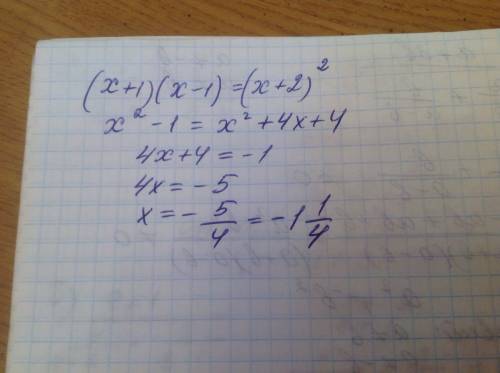 (x+1)(x-1)=(x+2)²
x²-1=x²+4x+4
4x+4=-1
4x=-5
x=-5/4=-1 1/4